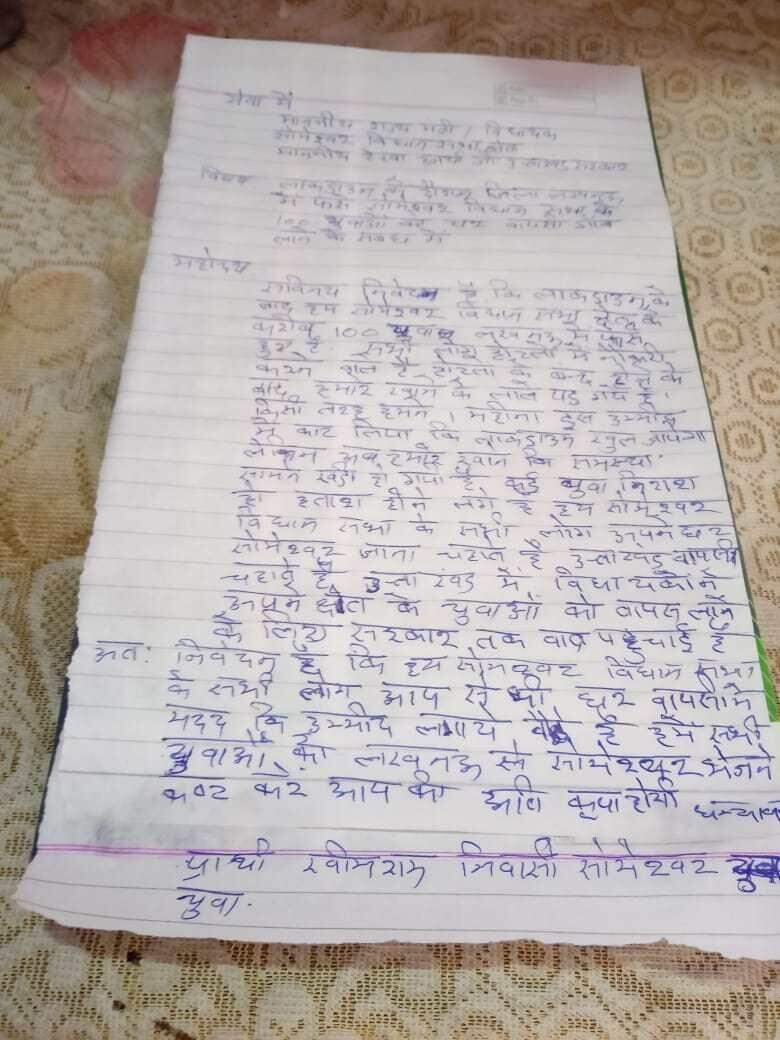 सेवा में
माननीय राज्य मंत्री / विधायक
सोमेश्वर विधान सभा क्षेत्र
माननीय रेखा आर्या जी उत्तराखंड सरकार
विषय लाकडाउन के दौरान जिला लखनऊ
में फंसे सोमेश्वर विधान सभा के
100 युवाओं को घर वापसी
लाने के संबंध में
महोदय
सविनय निवेदन है कि लाकडाउन के
बाद हम सोमेश्वर विधान सभा क्षेत्र के
करीब 100 युवा लखनऊ में फंसे
हुए है सभी लोग होटलों में नौकरी
करने वाले है होटलों के बन्द होने के
बाद हमारे खाने के लाले पड़ गये है।
किसी तरह हमने 1 महीना इस उम्मीद
में काट लिया कि लाकडाउन खुल जायेगा
लेकिन अब हमारे खान कि समस्या
सामने खड़ी हो गयी है कई युवा निराश
हो हताश होने लगे है हम सोमेश्वर
विधान सभा के सभी लोग अपने घर
सोमेश्वर जाना चहाते है उत्तराखंड वापसी
चहाते है उत्तराखंड में विधायकों ने
अपने क्षेत्र के युवाओं को वापस लाने
के लिए सरकार तक बात पहुंचाई है
अतः निवेदन है कि हम सोमेश्वर विधान सभा
के सभी लोग आप से भी घर वापसी में
मदद कि उम्मीद लगाये बैठे है हम सभी
युवाओं को लखनऊ से सोमेश्वर भेजने
कष्ट करे आप की अति कृपा होगी धन्यवाद
प्रार्थी खीमराम निवासी सोमेश्वर
युवा.